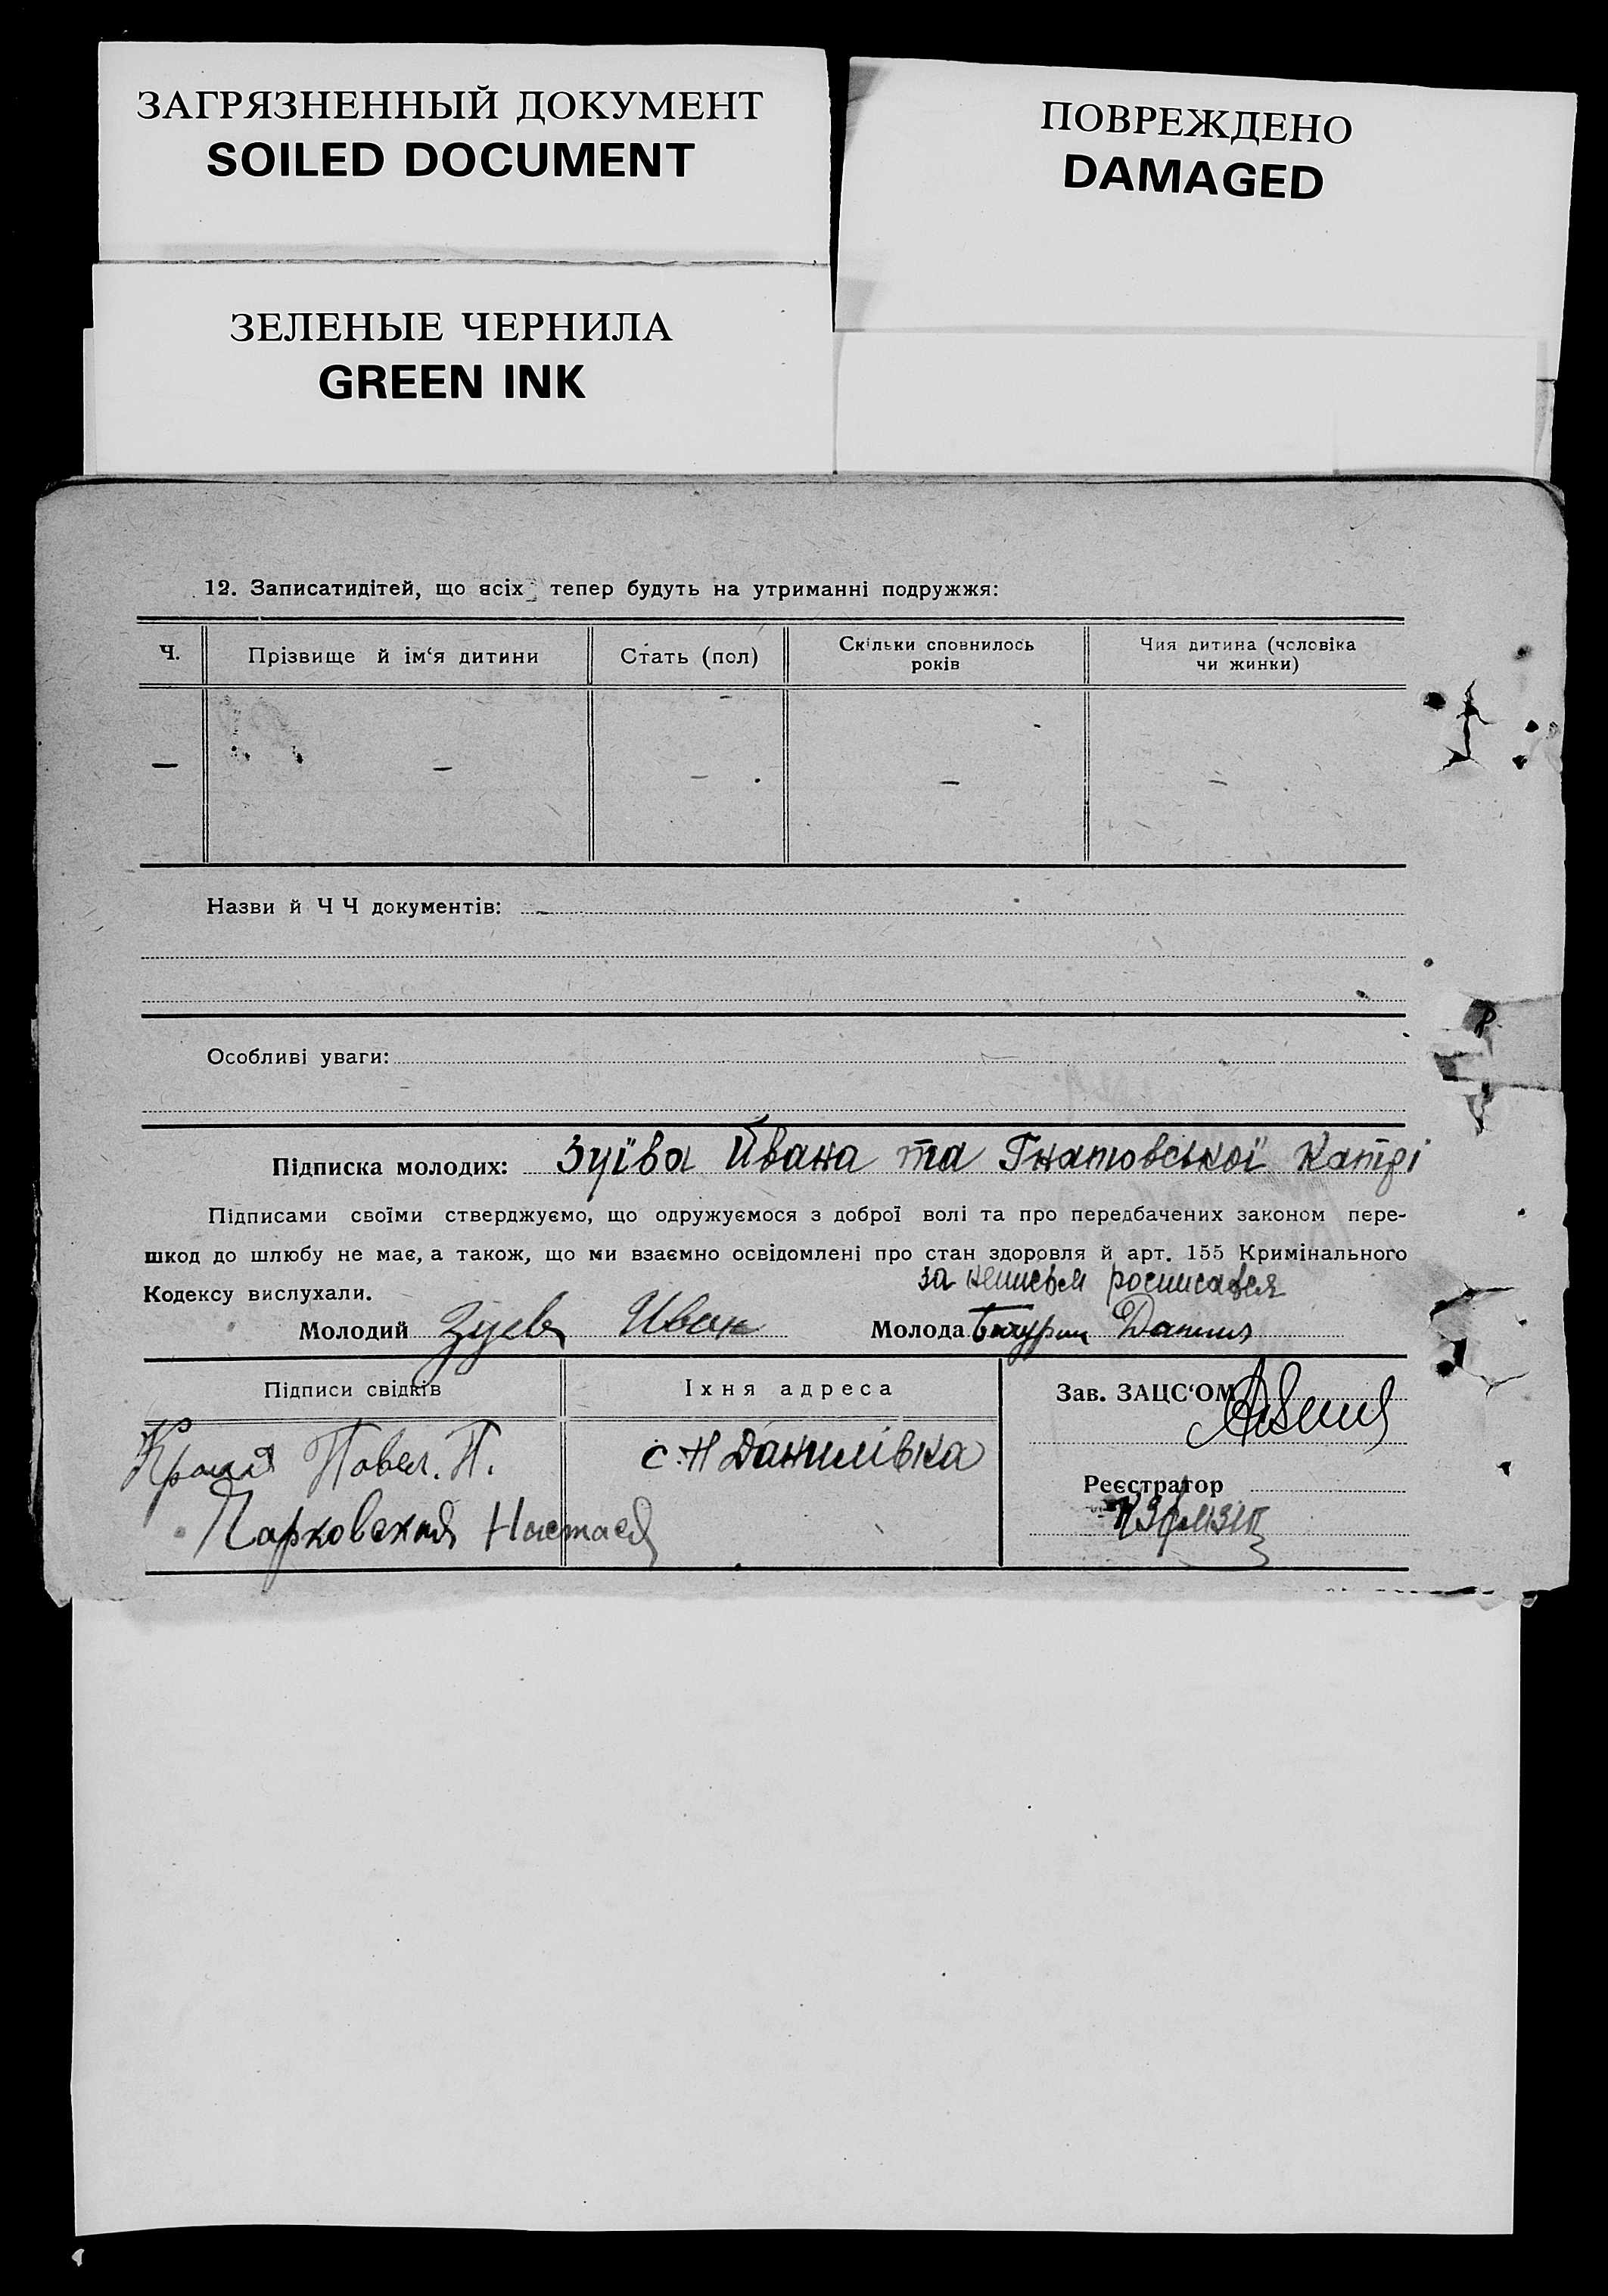 ЗАГРЯЗНЕННЫЙ ДОКУМЕНТ
SOILED DOCUMENT
ПОВРЕЖДЕНО
DAMAGED
ЗЕЛЕНЫЕ ЧЕРНИЛА
GREEN INK
12. Записатидітей, що всіх тепер будуть на утриманні подружжя:
Ч. Прізвище й ім‘я дитини Стать (пол) Скільки сповнилось Чия дитина (чоловіка
років чи жинки)
— — — — —
Назви й Ч Ч документів: —
Особливі уваги:
Підписка молодих: Зуїва Йвана та Гнатовської Катрі
Підписами своїми стверджуємо, що одружуємося з доброї волі та про передбачених законом пере-
шкод до шлюбу не має, а також, що ми взаємно освідомлені про стан здоровля й арт. 155 Кримінального
Кодексу вислухали.
за росписався
Молодий Зуев Иван Молода Данил
Підписи свідків Їхня адреса Зав. ЗАЦС‘ОМ
Павел. П. с. Н Данилівка
Реєстратор
Настася